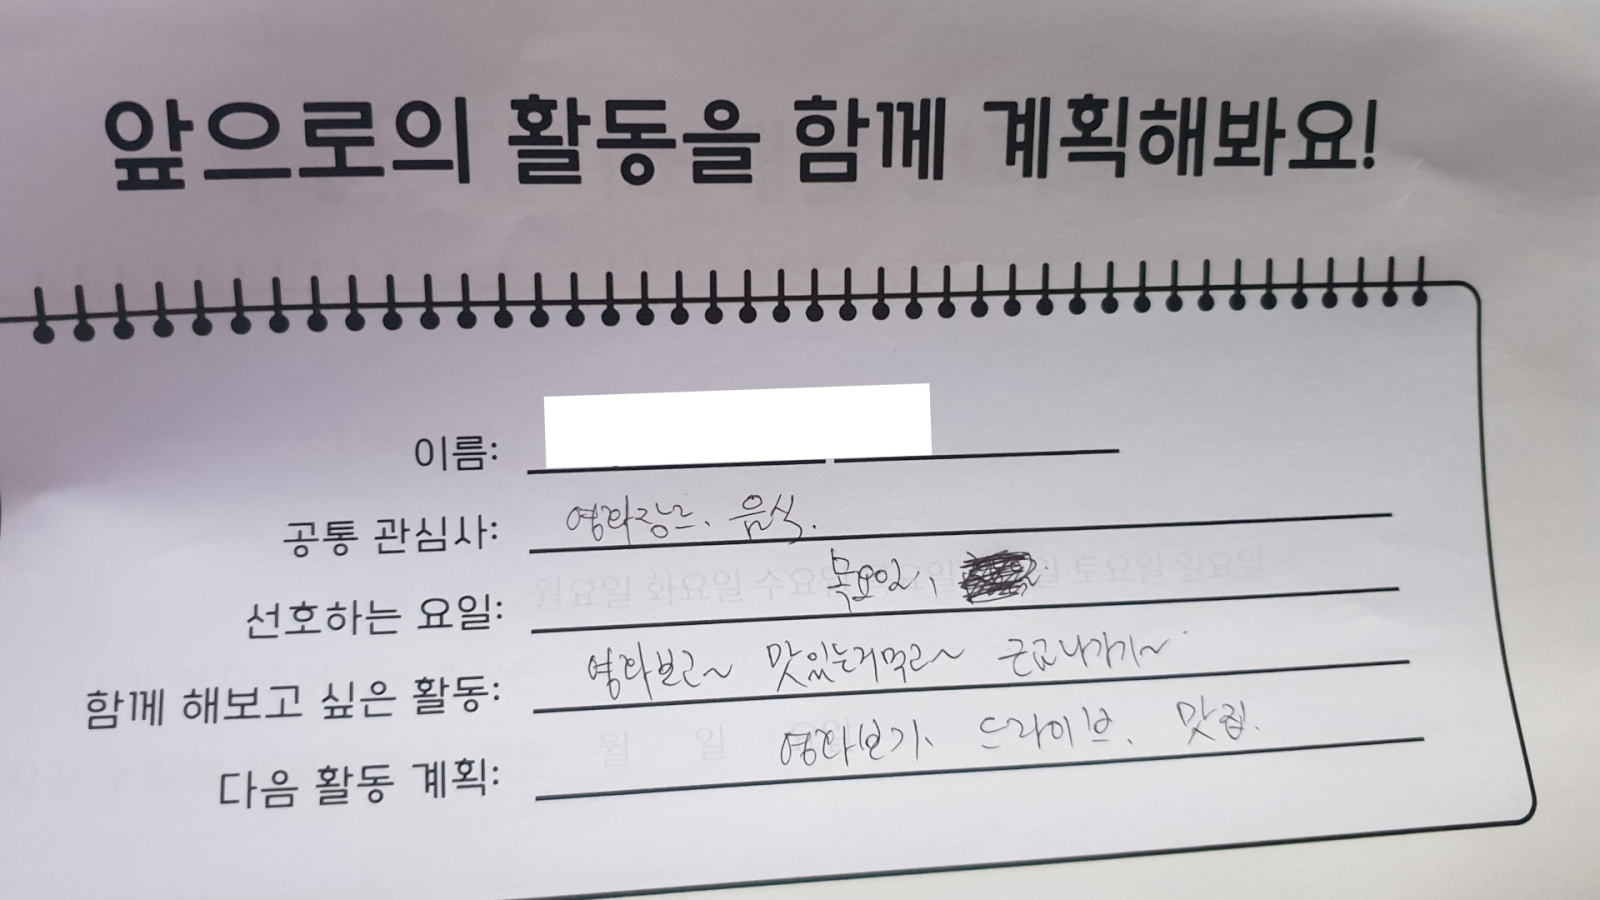 앞으로의 활동을 함께 계획해봐요!
이름:
공통 관심사: 영화장르, 음식.
선호하는 요일: 목요일,
월요일 화요일 수요일 토요일 일요일
함께 해보고 싶은 활동: 영화보고~ 맛있는거먹고~ 근교나가기~
월 일 요일
다음 활동 계획: 영화보기, 드라이브, 맛집.